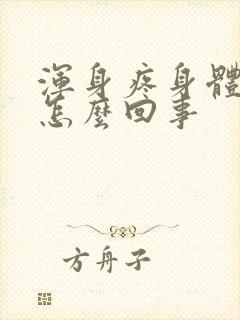 渾身疼身體
怎麼回事
方舟子